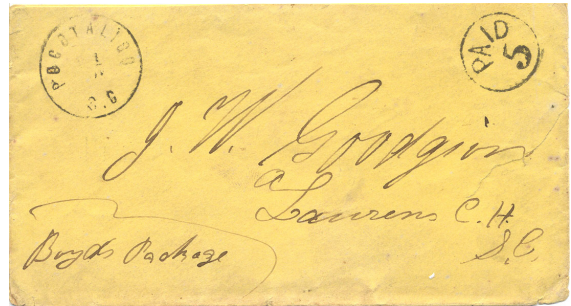 POCOTALIGO
S.C
PAID
5
J. W. Goodgion
a
Laurens C. H.
S. C.
Boyds Package